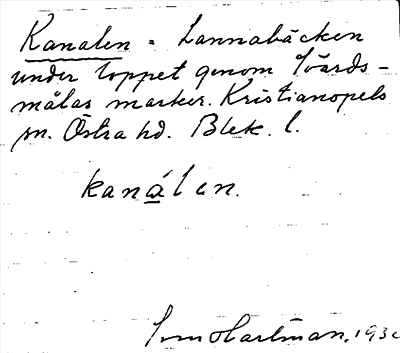 Kanalen = Lannabäcken
under loppet genom Svärds-
målas marker. Kristianopels
sn. Östra hd. Blek. l.
kanálen.
Sven Hartman. 193